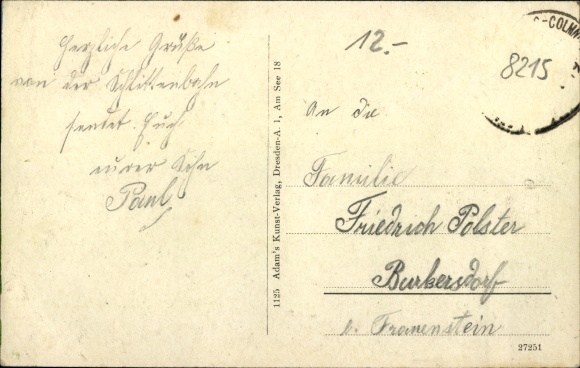 Herzliche Grüße
von der Schlittenbahn
sendet Euch
eurer Sohn
Paul
1125 Adam's Kunst-Verlag, Dresden-A. 1, Am See 18
12.-
8215
An die
Familie
Friedrich Polster
Burkersdorf
b. Frauenstein
27251